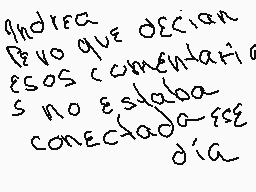 Andrea
Pero que decian
esos comentario
s no estaba
conectada ese
día